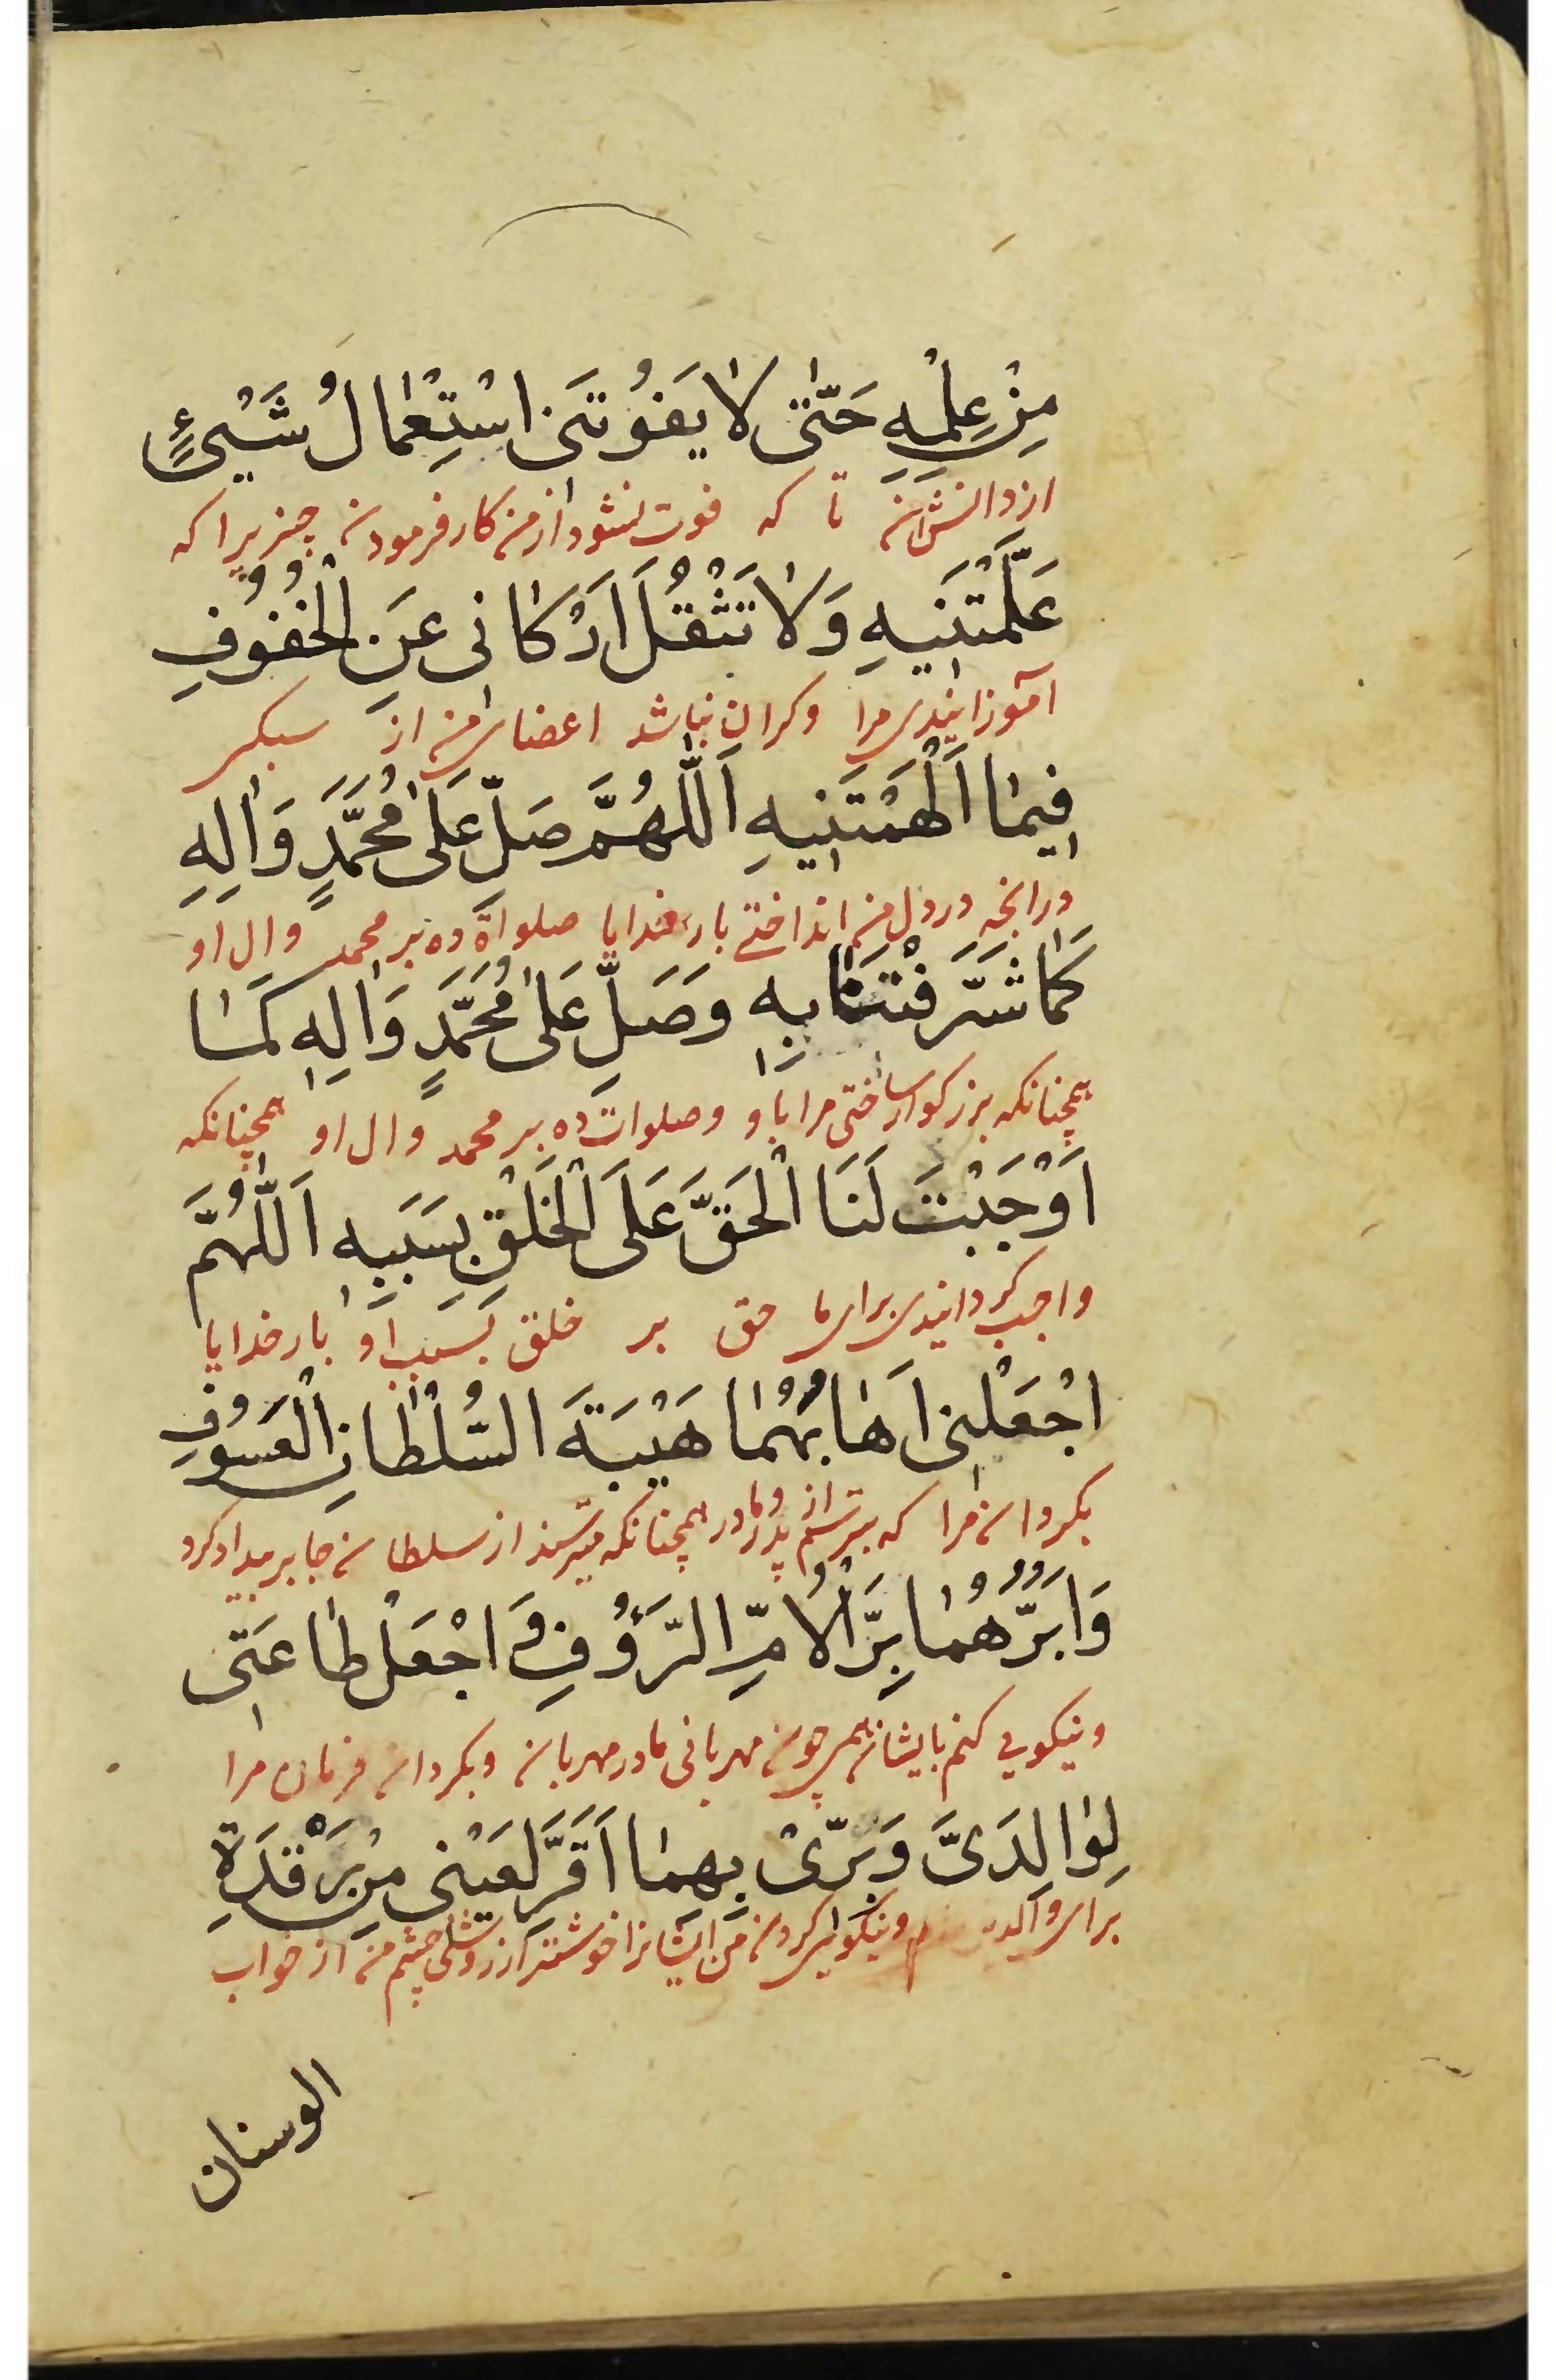 مِنْ عِلْمِهِ حَتّٰى لَا يَفُوتَنِى اسْتِعْمَالُ شَيْءٍ
از دانش آن تا که فوت نشود از من کار فرمودن چیزیرا که
عَلَّمْتَنِيهِ وَلَا تَثْقُلَ اَرْكَانِى عَنِ الْحُفُوفِ
آموزانیدی مرا و کران نباشد اعضای من از سبکی
فِيمَا اَلْهَمْتَنِيهِ اَللّٰهُمَّ صَلِّ عَلٰى مُحَمَّدٍ وَاٰلِهِ
در آنچه در دل من انداختی بار خدایا صلواة ده بر محمد و ال او
كَمَا شَرَّفْتَنَا بِهِ وَصَلِّ عَلٰى مُحَمَّدٍ وَاٰلِهِ كَمَا
همچنانکه بزرکوار ساختی مرا باو و صلوات ده بر محمد و ال او همچنانکه
اَوْجَبْتَ لَنَا الْحَقَّ عَلَى الْخَلْقِ بِسَبَبِهِ اَللّٰهُمَّ
واجب کردانیدی برای ما حق بر خلق بسبب او بار خدایا
اجْعَلْنِى اَهَابُهُمَا هَيْبَةَ السُّلْطَانِ الْعَسُوفِ
بکردان مرا که بترسم از پدر و مادر همچنانکه میترسند از سلطان جابر بیدادکرد
وَاَبَرُّهُمَا بِرَّ الْاُمِّ الرَّؤُفِ وَاجْعَلْ طَاعَتِى
و نیکویی کنم بایشان همچون مهربانی مادر مهربان و بکردان فرمان مرا
لِوَالِدَىَّ وَبِرِّىْ بِهِمَا اَقَرَّ لِعَيْنِى مِنْ رَقْدَةِ
برای والدین و نیکویی کردن من ایشانرا خوشتر از روشنی چشم من از خواب
الوسنان